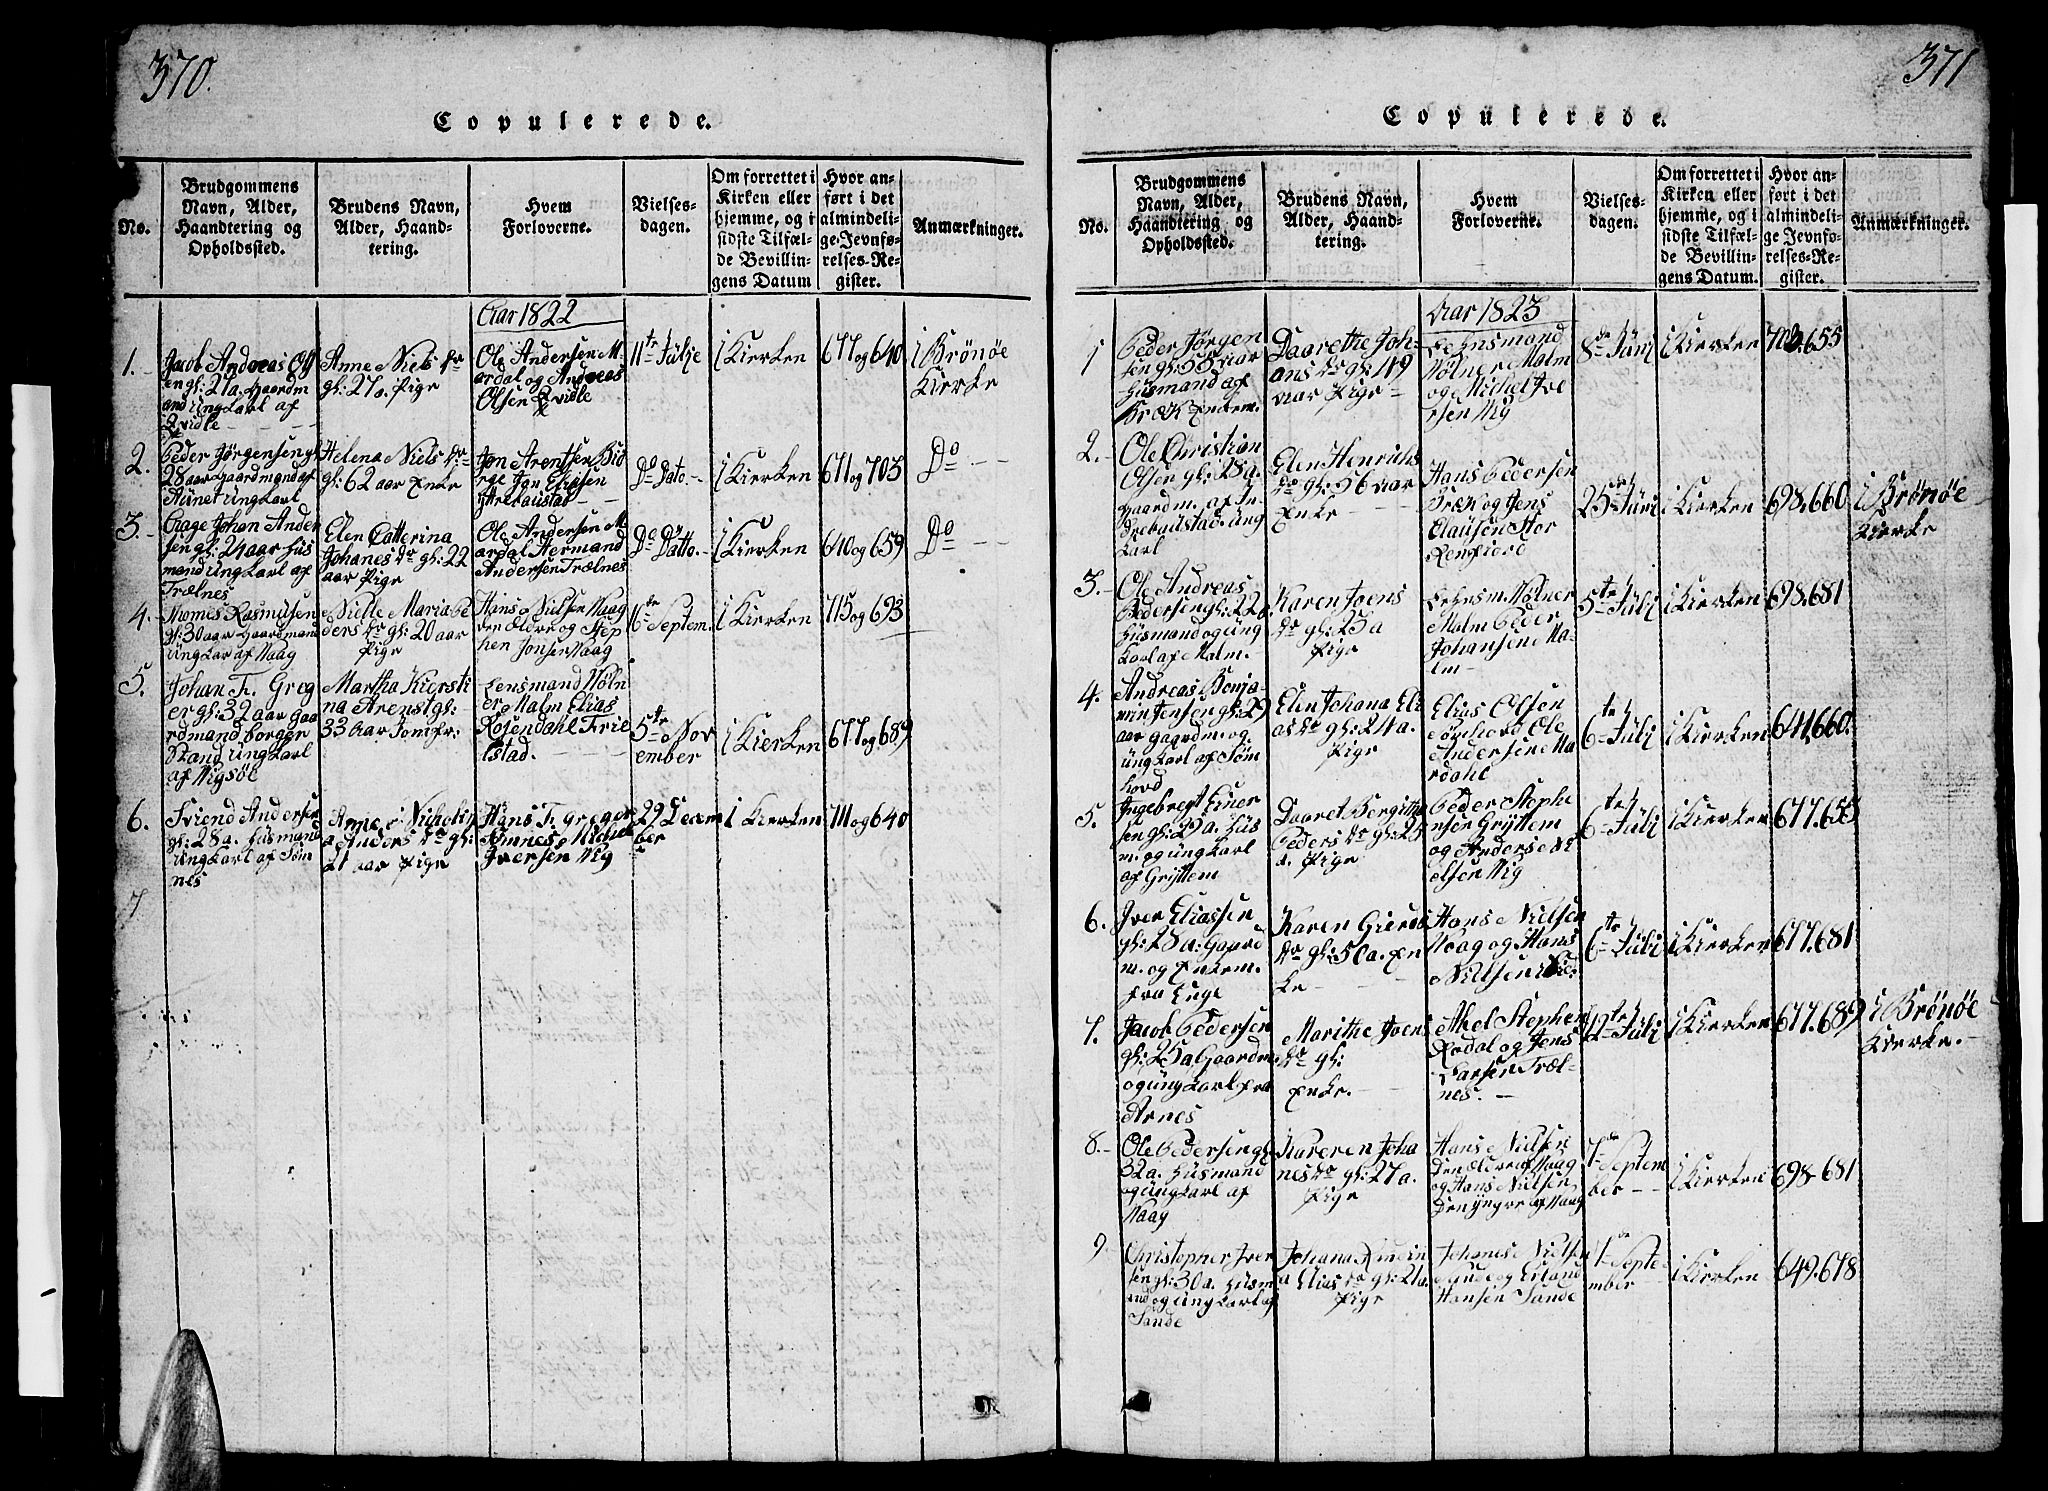 370.
Copulerede.
No.
Brudgommens
Navn, Alder,
Haandtering og
Opholdssted.
Brudens Navn,
Alder, Haand-
tering.
Hvem
Forloverne.
Vielses-
dagen.
Om forrettet i
Kirken eller
hjemme, og i
sidste Tilfæl-
de Bevillin-
gens Datum
Hvor an-
ført i det
almindeli-
ge Jevnfø-
relses-Re-
gister.
Anmærkninger.
Aar 1822
1.
Jacob Andreas Ols
en gl: 27 a. Gaardm
and Ungkarl af
Qvidle
Anne Niels Dr
gl: 27. Pige
Ole Andersen M-
ardal og Andreas
Olsen Qvidle
11te Julje
i Kierken
677 og 640
i Brönöe
Kierke
2.
Peder Jørgensen gl
28 aar Gaardmand af
Ungkarl
Helena Niels Dr
gl: 62 aar Enke
Jon Arentsen
Jon Eliasen
Do Dato.
i Kierken
671 og 703
Do
3.
Aage Johan Ander
sen gl: 24 aar Hus
mand Ungkarl af
Trælnes
Elen Catterina
Johanes Dr gl: 22
aar Pige
Ole Andersen M-
ardal Hermand
Andersen Trælnes
Do Datto.
i Kierken
640 og 659
Do
4.
Thomes Rasmusen
gl: 30 aar Gaardman
Ungkar af Vaag
Nille Maria Pe
ders Dr gl: 20 aar
Pige
Hans Nielsen Vaag
den Ældre og Step
hen Jonsen Vaag
16te Septem.
i Kierken
715 og 693
5.
Johan F. Greg
er gl: 32 aar Gaa
rdmand borger
Stand Ungkarl
af Vigsöe
Martha Kiersti
na Arenst gl:
33 aar Jomfr.
Lensmand Nöln
er Malm Elias
Rosendahl Trie
lstad.
5te Nov
ember
i Kierken
677 og 689
6.
Friend Andersen
gl: 28 a. Husmand
Ungkarl af Söm
nes
Anne Nicholin
a Anders Dr gl:
21 aar Pige
Hans F. Greger
Michel
Iversen Viig
29 Decem
ber
i Kierken
711 og 640
7
371
Copulerede.
No.
Brudgommens
Navn, Alder,
Haandtering og
Opholdssted.
Brudens Navn,
Alder, Haand-
tering.
Hvem
Forloverne.
Vielses-
dagen.
Om forrettet i
Kirken eller
hjemme, og i
sidste Tilfæl-
de Bevillin-
gens Datum.
Hvor an-
ført i det
almindeli-
ge Jevnfø-
relses-Re-
gister.
Anmærkninger.
Aar 1823
1
Peder Jørgen
sen gl: 55 aar
Husmand af
Bræk Enkem.
Daarethe Joh-
ans Dr gl: 49
aar Pige
Lehnsmand
Nölner Malm
og Michel Ive
rsen Viig
8de Juni
i Kierken
703.655
2.
Ole Christian
Olsen gl: 28 a.
Gaardm. af In
drebaustad. ung
karl
Elen Henrichs
Dr gl: 56 aar
Enke
Hans Pedersen
Bræk og Jens
Clausen Stor
Remfiord
25de Juni
i Kierken
698.660
i Brönöe
Kierke
3.
Ole Andreas
Pedersen gl: 22 a.
Husmand og ung
karl af Malm.
Karen Joens
Dr gl: 23 a
Pige
Lehnsm. Nölner
Malm Peder
Johansen Ma-
lm
5te Juli
i Kierken
698.681
4.
Andreas Benja-
min Jensen gl: 29
aar Gaardm. og
ungkarl af Söm
hovd
Elen Johana Eli
as Dr gl: 24 a.
Pige
Elias Olsen
Sömhovd Ole
Andersen Ma
rdahl
6te Juli
i Kierken
641.660.
5.
Ingebregt Einer
sen gl: 29 a. Hus
m. og ungkarl
af Gryttem
Daaret Bergitha
Peders Dr gl: 23
a. Pige
Peder Stephe
nsen Gryttem
og Anders Ni
elsen Viig
6te Juli
i Kierken
677.655
6.
Iver Eliassen
gl: 28 a: Gaard
m. og Enkem.
fra
Karen
Dr gl: 50 a. En
ke
Hans Nielsen
Vaag og Hans
Nielsen
6te Juli
i Kierken
677.681
7.
Jacob Pedersen
gl: 25 a Gaardm
og ungkarl fra
Arnes
Marithe Joens
Dr gl:
Enke.
Abel Stephen
Rodal og Jens
Larsen Træl-
nes.
12te Juli
i Kierken
677.689
i Brönöe
Kierke.
8.
Ole Pedersen gl
32 a. Husmand
og ungkarl af
Vaag
Karen Joha
nes Dr gl: 27 a.
Pige
Hans Nielsen
den Ældre af Vaag
og Hans Nielsen
den yngre af Vaag
7de Septem
ber
i Kierken
698.681
9.
Christopher Iver
sen gl: 30 a. Husm
and og ungkarl af
Sande
Johana
a Elias Dr gl: 21 a.
Pige
Johanes Nielsen
og Erland
Hansen Sande
7de Septe
mber
i Kierken
649.678